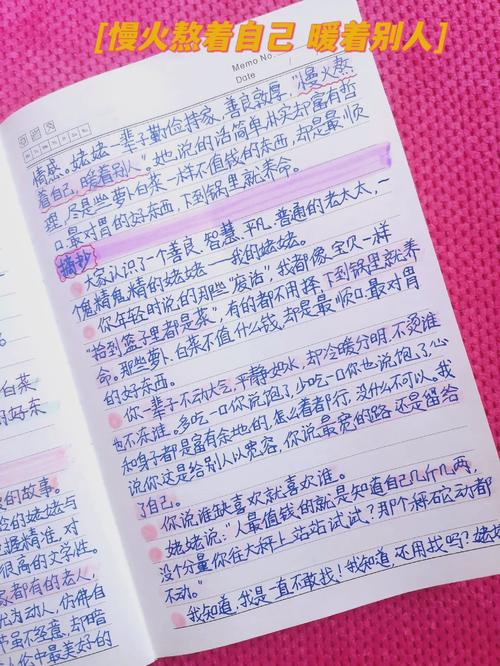 [慢火熬着自己 暖着别人]
Memo No.
Date
情感。姥姥一辈子勤俭持家、善良敦厚，"慢火熬
着自己，暖着别人"。她说的话简单朴实却富有哲
理，尽是些萝卜白菜一样不值钱的东西，却是最顺
口、最对胃的好东西，下到锅里就养命。
摘抄
大家认识了一个善良、智慧、平凡、普通的老太太，一
个鬼精鬼精的姥姥——我的姥姥。
你年轻时说的那些"废话"，我都像宝贝一样
"拾到篮子里都是菜"，有的都不用择，下到锅里就养
命。那些萝卜、白菜不值什么钱，却是最顺口、最对胃
的好东西。
你一辈子不动大气，平静如水，却冷暖分明，不烫谁
也不冻谁。多吃一口你说饱了，少吃一口你也说饱了，心
和身子都是富有余地的，怎么着都行，没什么不可以。我
说你还是给别人以宽容，你说最宽的路还是留给
了自己。
你说谁缺喜欢就喜欢谁。
姥姥说："人最值钱的就是知道自己几斤几两，
没个分量你往大秤上站站试试？那个秤砣动都
不动。"
我知道，我是一直不敢找！我知道，还用找吗？姥姥
白菜
的好东
的故事。
的姥姥与
握精准，对
很高的文学性。
家都有的老人，
尤为动人，仿佛自
节虽不经意，却暗
人伦中最美好的